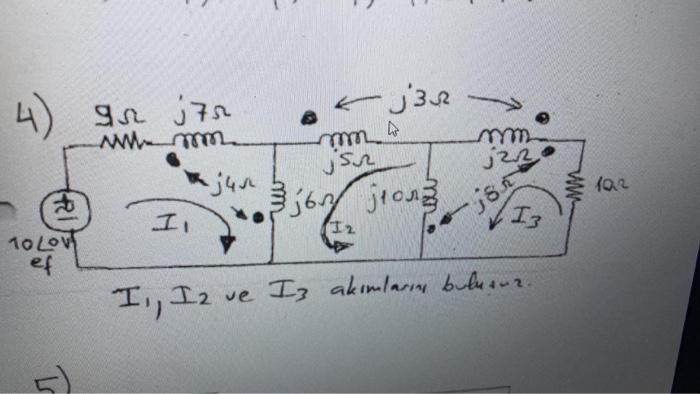 4)
9Ω j7Ω j3Ω
j5Ω j2Ω
j4Ω j6Ω j10Ω j8Ω 10Ω
I1 I2 I3
10∠0V
ef
I1, I2 ve I3 akımlarını bulunuz.
5)